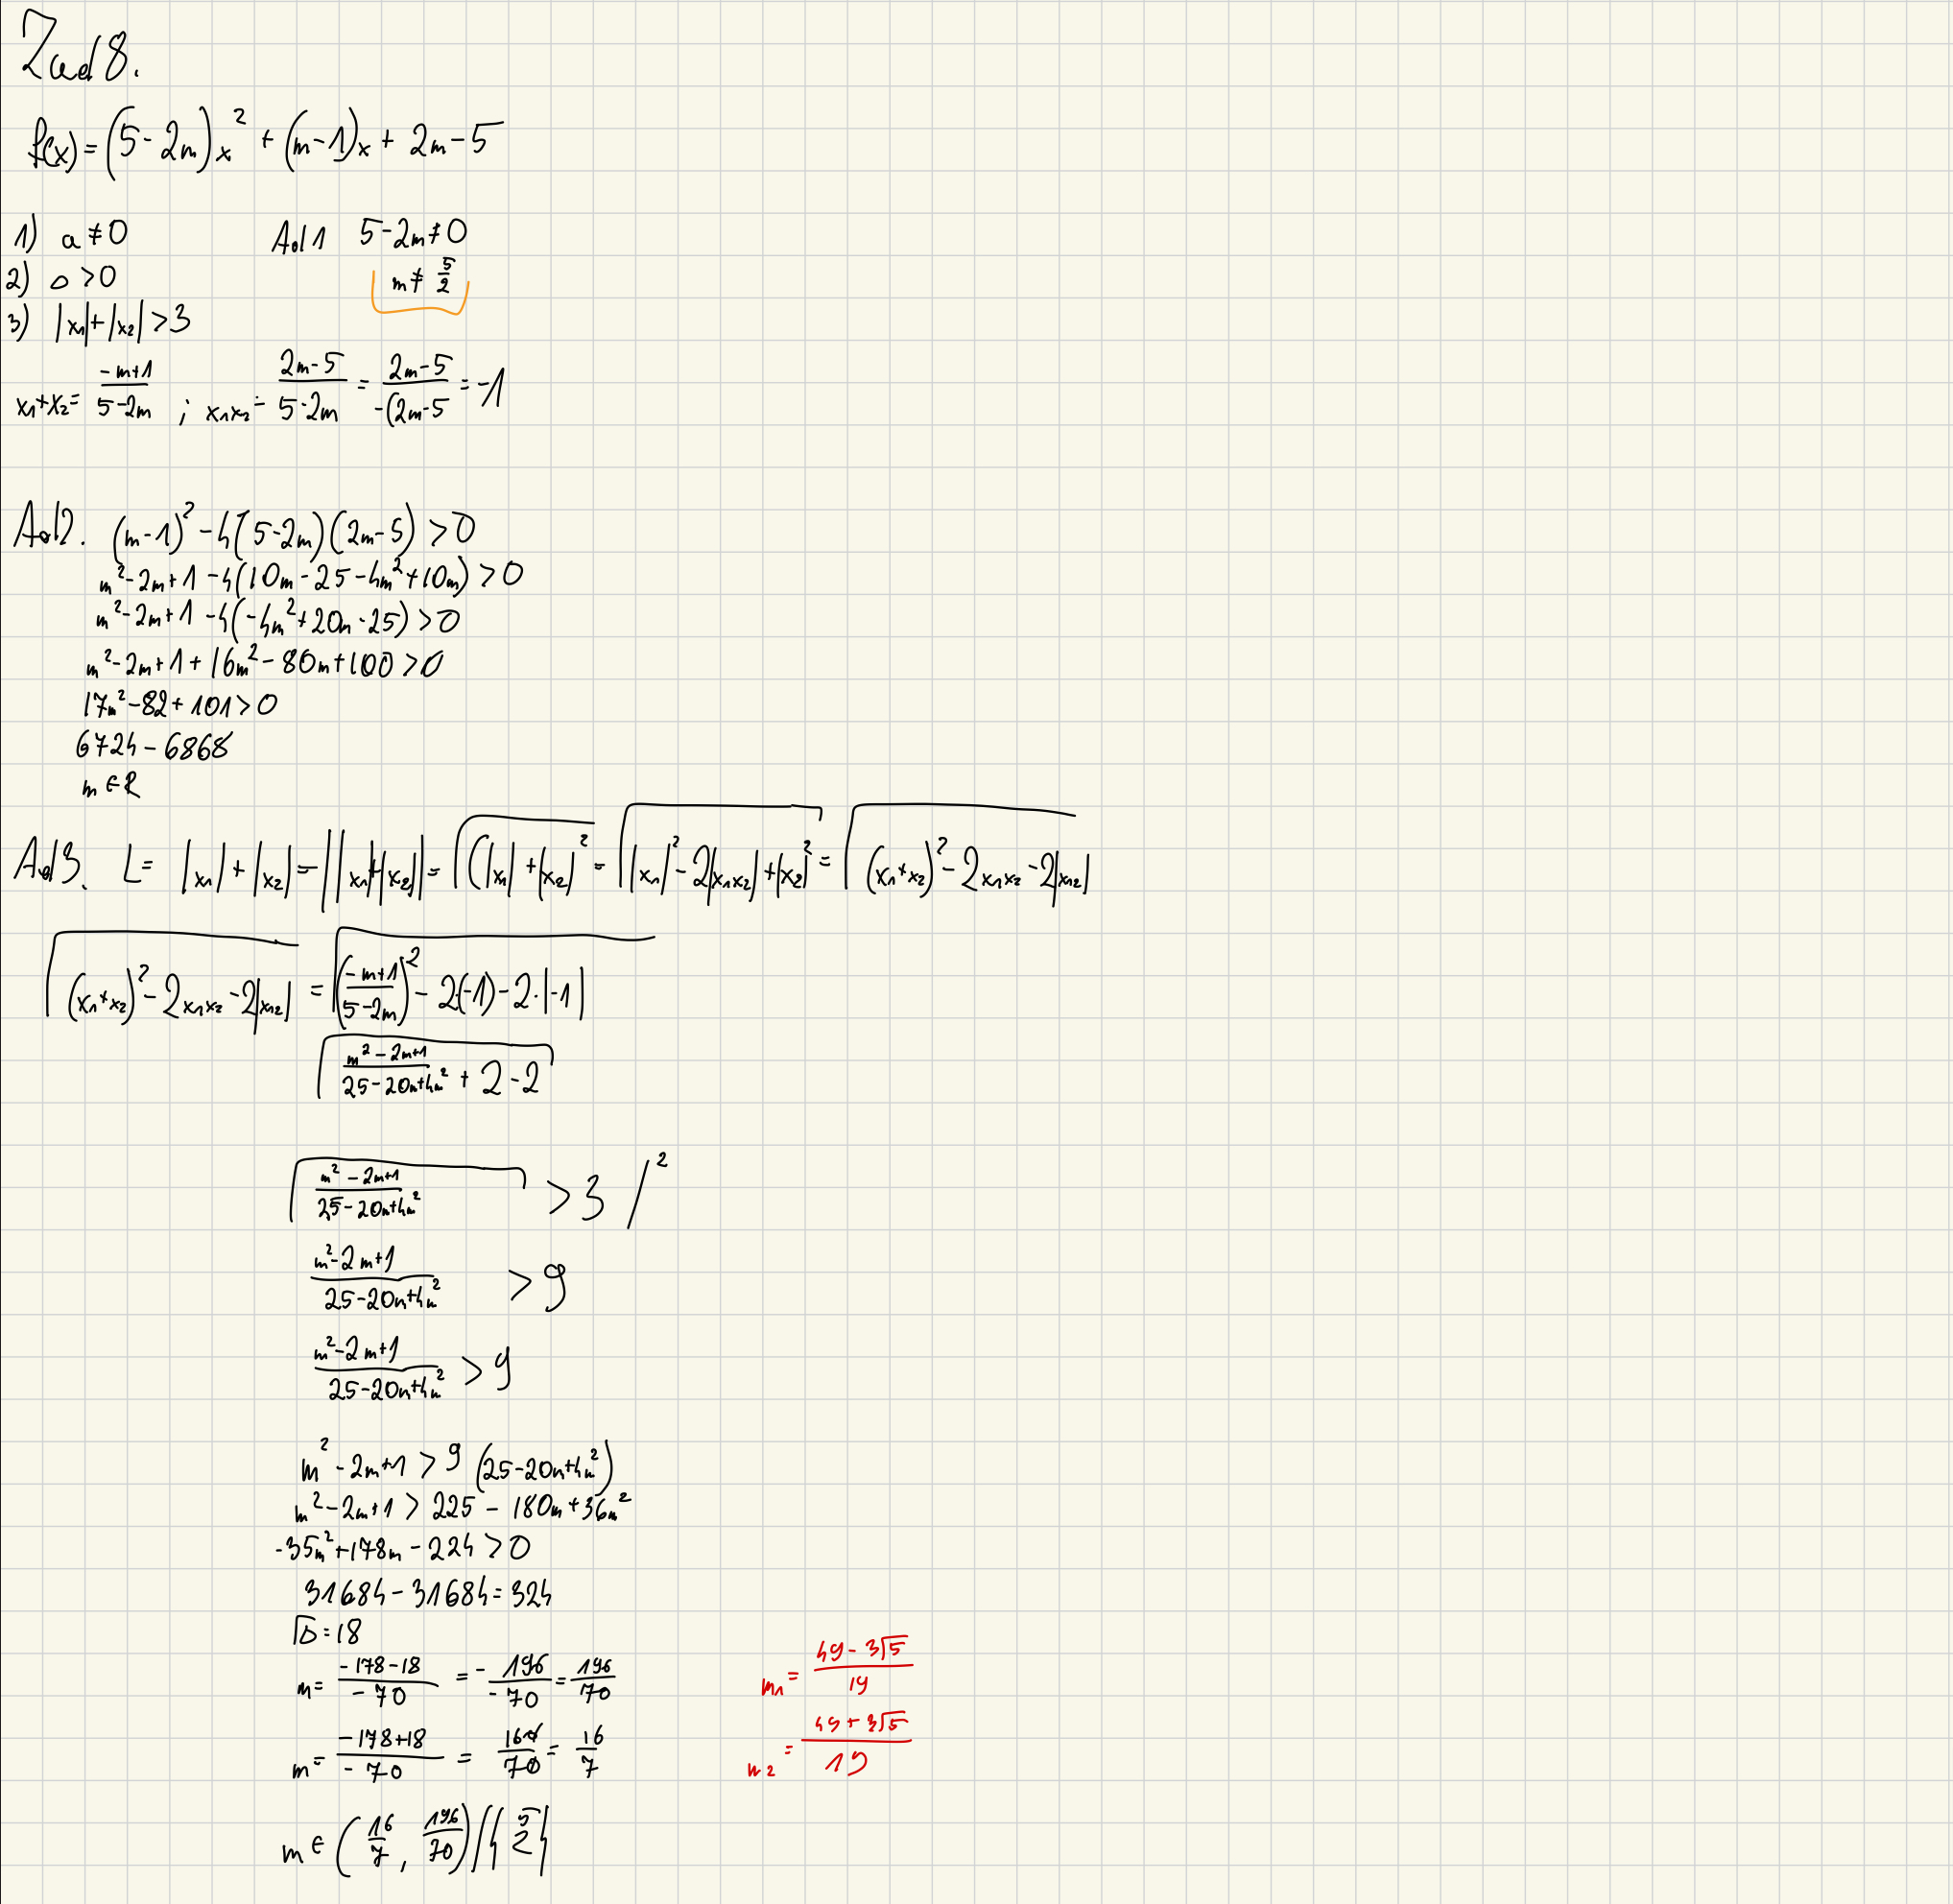 Zad 8.
f(x) = (5-2m)x² + (m-1)x + 2m-5
1) a ≠ 0
Ad 1 5-2m ≠ 0
2) Δ > 0
m ≠ 5/2
3) |x₁|+|x₂| > 3
x₁+x₂ = (-m+1)/(5-2m) ; x₁x₂ = (2m-5)/(5-2m) = (2m-5)/(-(2m-5) = -1
Ad 2. (m-1)² - 4(5-2m)(2m-5) > 0
m²-2m+1 -4(10m-25-4m²+10m) > 0
m²-2m+1 -4(-4m²+20m-25) > 0
m²-2m+1+16m²-80m+100 > 0
17m²-82+101 > 0
6724 - 6868
m ∈ R
Ad 3. L = |x₁|+|x₂| = ||x₁|+|x₂|| = √((|x₁|+|x₂|² = √(|x₁|²-2|x₁x₂|+|x₂|²) = √((x₁+x₂)²-2x₁x₂-2|x₁₂|)
√((x₁+x₂)²-2x₁x₂-2|x₁₂|) = √(((-m+1)/(5-2m))² - 2·(-1) - 2·|-1|)
√((m²-2m+1)/(25-20m+4m²) + 2-2)
√((m²-2m+1)/(25-20m+4m²)) > 3 /²
(m²-2m+1)/(25-20m+4m²) > 9
(m²-2m+1)/(25-20m+4m²) > 9
m²-2m+1 > 9(25-20m+4m²)
m²-2m+1 > 225 - 180m+36m²
-35m²+178m-224 > 0
31684-31684 = 324
√Δ = 18
m = (-178-18)/(-70) = -196/-70 = 196/70
m₁ = (49-3√5)/19
m = (-178+18)/(-70) = 160/70 = 16/7
m₂ = (49+3√5)/19
m ∈ (16/7, 196/70)/{5/2}